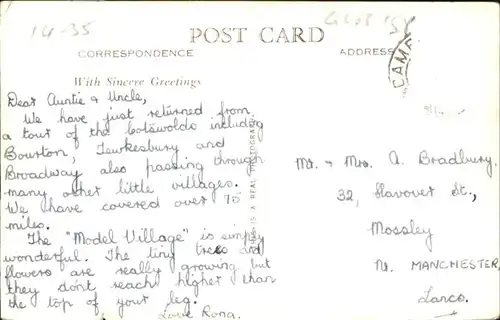 14-35
GLOS '58
POST CARD
CORRESPONDENCE
ADDRESS
CAMB
With Sincere Greetings
Dear Auntie & Uncle,
We have just returned from
a tour of the Cotswolds including
Bourton, Tewkesbury and
Broadway also passing through
many other little villages.
We have covered over 70
miles.
The "Model Village" is simply
wonderful. The tiny trees and
flowers are really growing but
they don't reach higher than
the top of your leg.
Love Rona.
THIS IS A REAL PHOTOGRAPH
Mr. & Mrs. A. Bradbury,
32, Hanover St.,
Mossley
Nr. MANCHESTER,
Lancs.